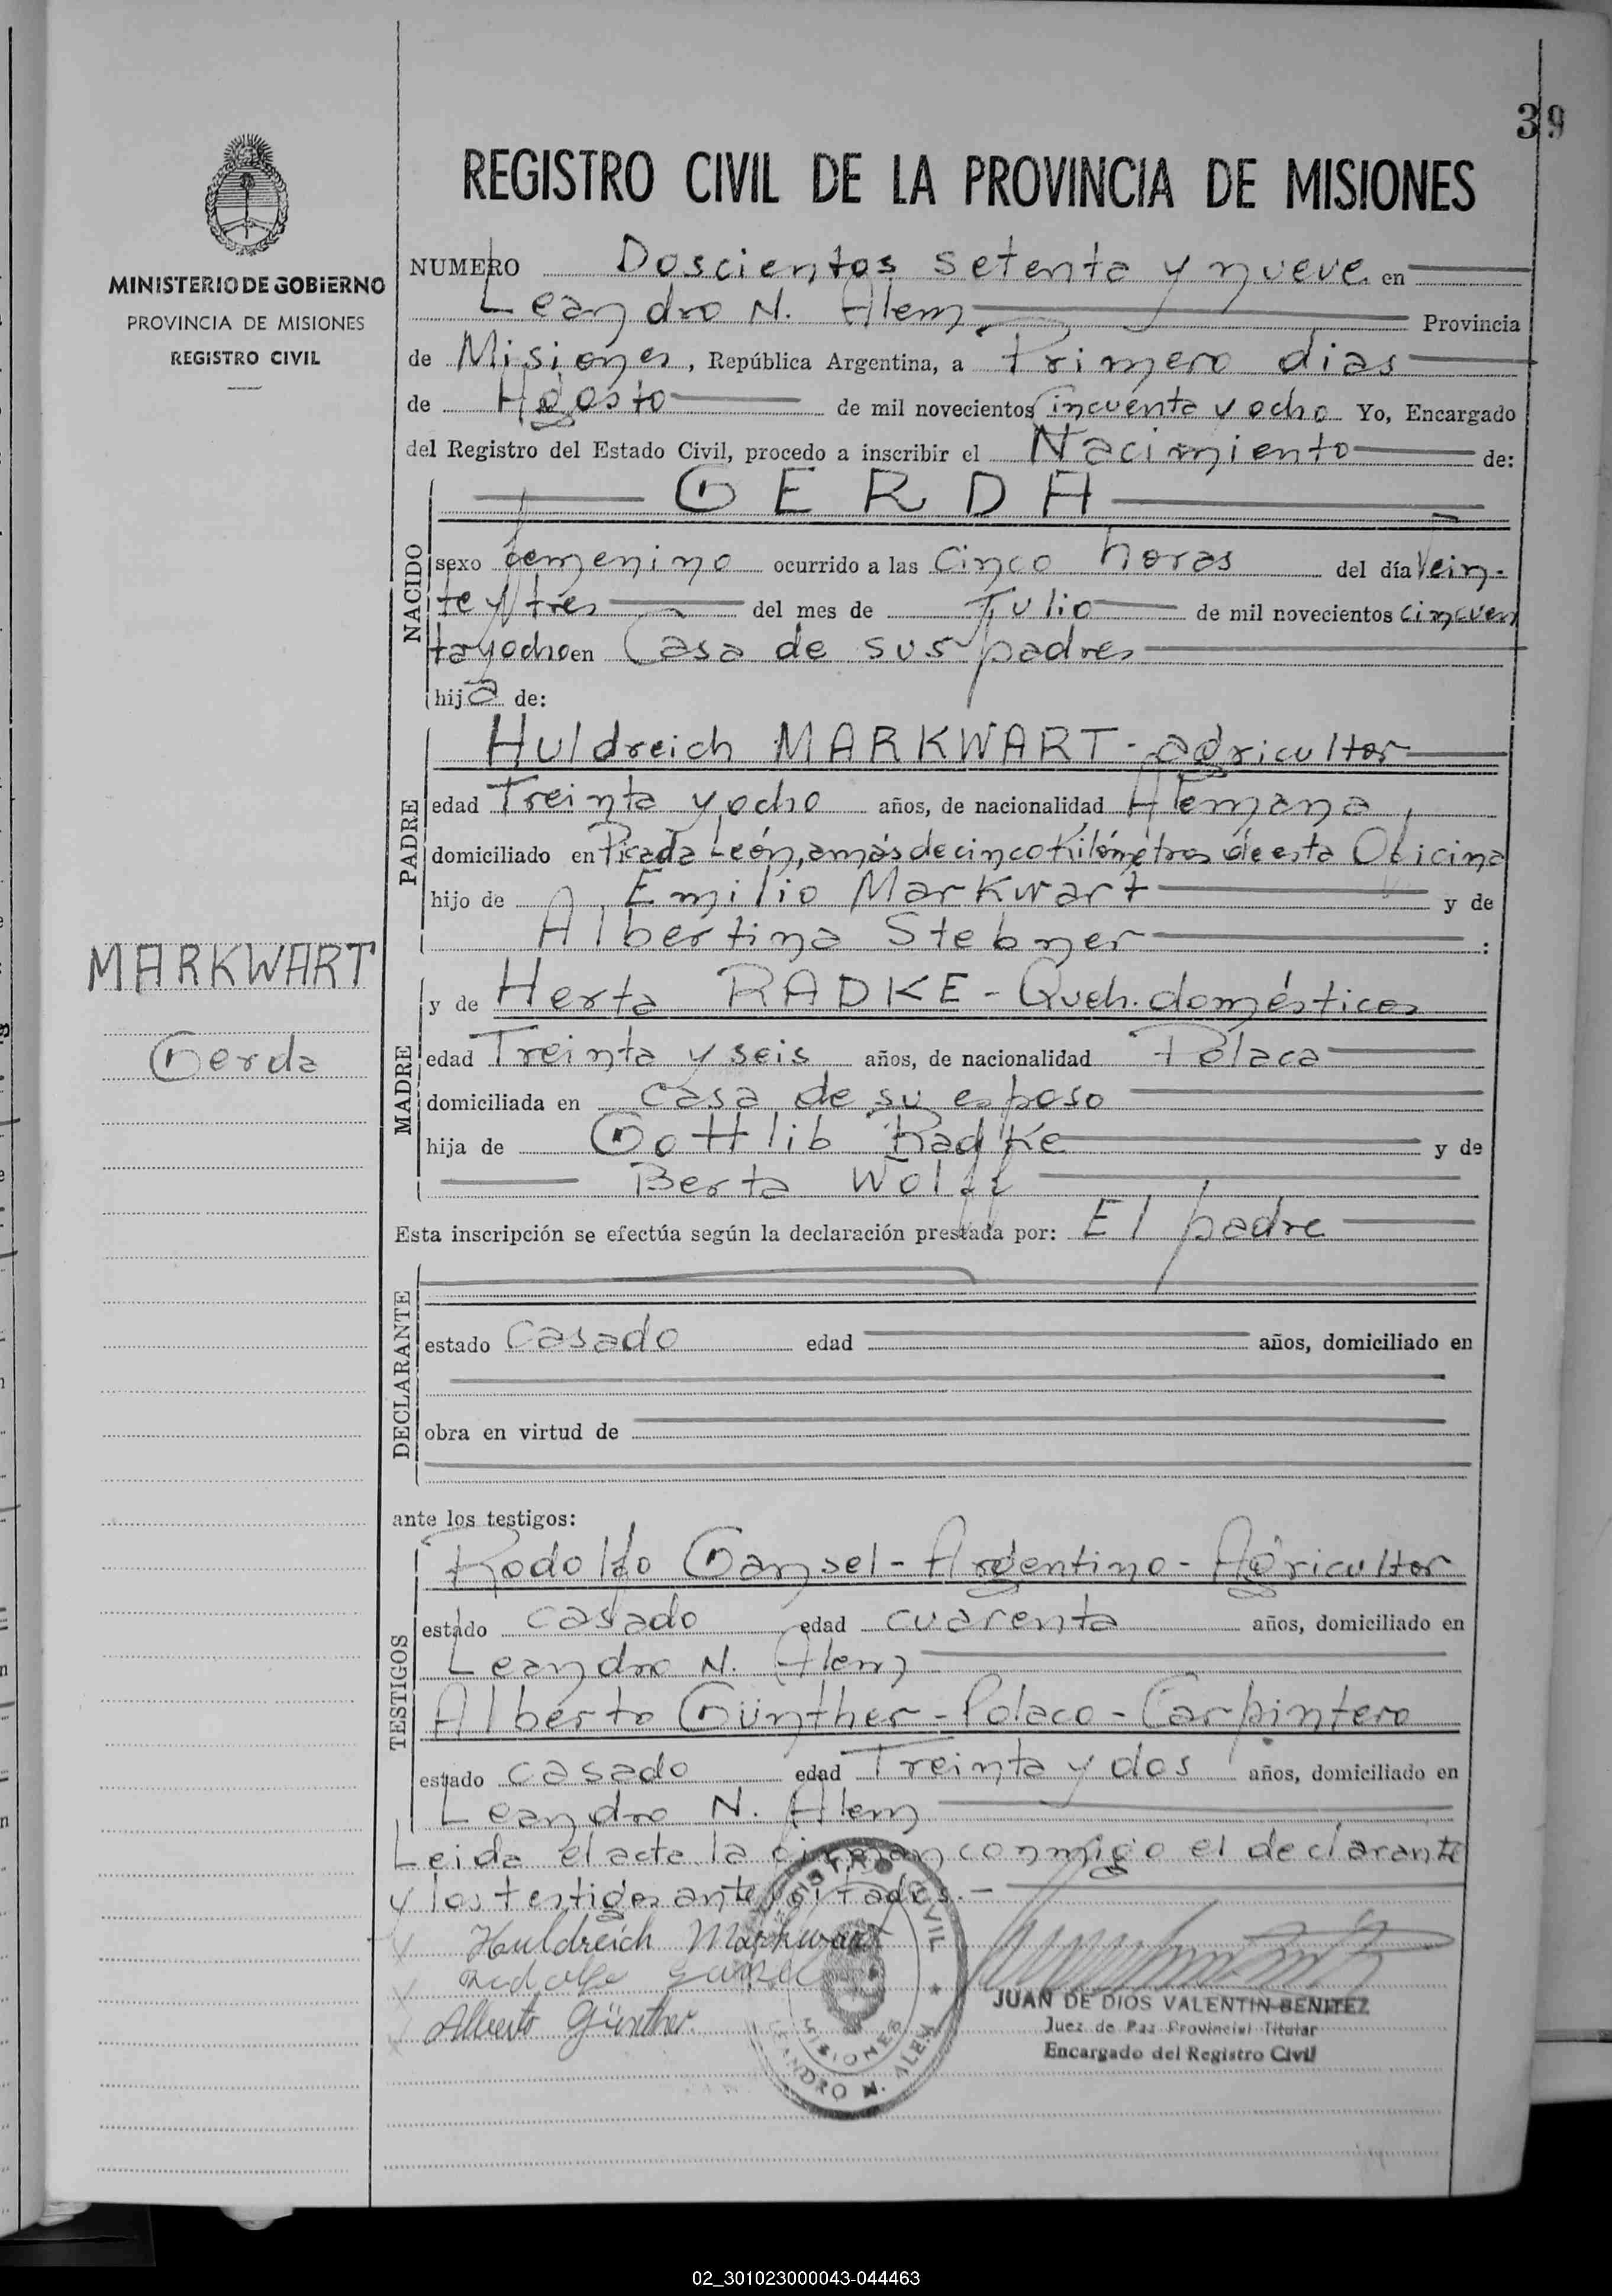 39
REGISTRO CIVIL DE LA PROVINCIA DE MISIONES
MINISTERIO DE GOBIERNO
PROVINCIA DE MISIONES
REGISTRO CIVIL
NUMERO Doscientos setenta y nueve en
Leandro N. Alem Provincia
de Misiones, República Argentina, a Primero dias
de Agosto de mil novecientos Cincuenta y ocho Yo, Encargado
del Registro del Estado Civil, procedo a inscribir el Nacimiento de:
GERDA
NACIDO
sexo femenino ocurrido a las Cinco horas del día Vein-
te y tres del mes de Julio de mil novecientos cincuen
ta y ocho en Casa de sus padres
hija de:
PADRE
Huldreich MARKWART - agricultor
edad Treinta y ocho años, de nacionalidad Alemana,
domiciliado en Picada León, a más de cinco Kilómetros de esta Oficina
hijo de Emilio Markwart y de
Albertina Stebner :
MARKWART
Gerda
MADRE
y de Herta RADKE - Queh. domésticos
edad Treinta y seis años, de nacionalidad Polaca
domiciliada en casa de su esposo
hija de Gottlib Radke y de
Berta Wolff
Esta inscripción se efectúa según la declaración prestada por: El padre
DECLARANTE
estado Casado edad años, domiciliado en
obra en virtud de
ante los testigos:
TESTIGOS
Rodolfo Gansel - Argentino - Agricultor
estado casado edad cuarenta años, domiciliado en
Leandro N. Alem
Alberto Günther - Polaco - Carpintero
estado casado edad Treinta y dos años, domiciliado en
Leandro N. Alem
Leida el acta la firman conmigo el declarante
y los testigos ante citados.-
Huldreich Markwart
Rodolfo Gansel
Alberto Günther
REGISTRO CIVIL
MISIONES
LEANDRO N. ALEM
JUAN DE DIOS VALENTIN BENITEZ
Juez de Paz Provincial Titular
Encargado del Registro Civil
02_301023000043-044463